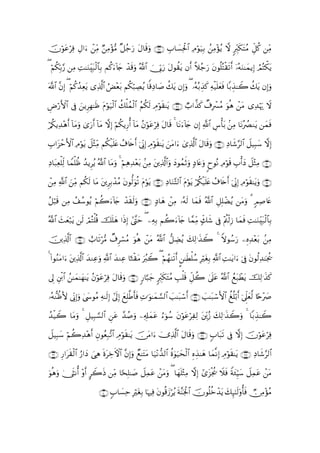 مِّن كُلِّ مُتَكَبِّرٍ لَّا يُؤْمِنُ بِيَوْمِ الْحِسَابِ ۝ وَقَالَ رَجُلٌ مُّؤْمِنٌ مِّنْ آلِ فِرْعَوْنَ
يَكْتُمُ إِيمَانَهُ أَتَقْتُلُونَ رَجُلًا أَن يَقُولَ رَبِّيَ اللَّهُ وَقَدْ جَاءَكُم بِالْبَيِّنَاتِ مِن رَّبِّكُمْ ۖ
وَإِن يَكُ كَاذِبًا فَعَلَيْهِ كَذِبُهُ ۖ وَإِن يَكُ صَادِقًا يُصِبْكُم بَعْضُ الَّذِي يَعِدُكُمْ ۖ إِنَّ اللَّهَ
لَا يَهْدِي مَنْ هُوَ مُسْرِفٌ كَذَّابٌ ۝ يَا قَوْمِ لَكُمُ الْمُلْكُ الْيَوْمَ ظَاهِرِينَ فِي الْأَرْضِ
فَمَن يَنصُرُنَا مِن بَأْسِ اللَّهِ إِن جَاءَنَا ۚ قَالَ فِرْعَوْنُ مَا أُرِيكُمْ إِلَّا مَا أَرَىٰ وَمَا أَهْدِيكُمْ
إِلَّا سَبِيلَ الرَّشَادِ ۝ وَقَالَ الَّذِي آمَنَ يَا قَوْمِ إِنِّي أَخَافُ عَلَيْكُم مِّثْلَ يَوْمِ الْأَحْزَابِ
۝ مِثْلَ دَأْبِ قَوْمِ نُوحٍ وَعَادٍ وَثَمُودَ وَالَّذِينَ مِن بَعْدِهِمْ ۚ وَمَا اللَّهُ يُرِيدُ ظُلْمًا لِّلْعِبَادِ
۝ وَيَا قَوْمِ إِنِّي أَخَافُ عَلَيْكُمْ يَوْمَ التَّنَادِ ۝ يَوْمَ تُوَلُّونَ مُدْبِرِينَ مَا لَكُم مِّنَ اللَّهِ مِنْ
عَاصِمٍ ۗ وَمَن يُضْلِلِ اللَّهُ فَمَا لَهُ مِنْ هَادٍ ۝ وَلَقَدْ جَاءَكُمْ يُوسُفُ مِن قَبْلُ
بِالْبَيِّنَاتِ فَمَا زِلْتُمْ فِي شَكٍّ مِّمَّا جَاءَكُم بِهِ ۖ حَتَّىٰ إِذَا هَلَكَ قُلْتُمْ لَن يَبْعَثَ اللَّهُ
مِن بَعْدِهِ رَسُولًا ۚ كَذَٰلِكَ يُضِلُّ اللَّهُ مَنْ هُوَ مُسْرِفٌ مُّرْتَابٌ ۝ الَّذِينَ
يُجَادِلُونَ فِي آيَاتِ اللَّهِ بِغَيْرِ سُلْطَانٍ أَتَاهُمْ ۖ كَبُرَ مَقْتًا عِندَ اللَّهِ وَعِندَ الَّذِينَ آمَنُوا ۚ
كَذَٰلِكَ يَطْبَعُ اللَّهُ عَلَىٰ كُلِّ قَلْبِ مُتَكَبِّرٍ جَبَّارٍ ۝ وَقَالَ فِرْعَوْنُ يَا هَامَانُ ابْنِ لِي
صَرْحًا لَّعَلِّي أَبْلُغُ الْأَسْبَابَ ۝ أَسْبَابَ السَّمَاوَاتِ فَأَطَّلِعَ إِلَىٰ إِلَٰهِ مُوسَىٰ وَإِنِّي لَأَظُنُّهُ
كَاذِبًا ۚ وَكَذَٰلِكَ زُيِّنَ لِفِرْعَوْنَ سُوءُ عَمَلِهِ وَصُدَّ عَنِ السَّبِيلِ ۚ وَمَا كَيْدُ
فِرْعَوْنَ إِلَّا فِي تَبَابٍ ۝ وَقَالَ الَّذِي آمَنَ يَا قَوْمِ اتَّبِعُونِ أَهْدِكُمْ سَبِيلَ
الرَّشَادِ ۝ يَا قَوْمِ إِنَّمَا هَٰذِهِ الْحَيَاةُ الدُّنْيَا مَتَاعٌ وَإِنَّ الْآخِرَةَ هِيَ دَارُ الْقَرَارِ ۝
مَنْ عَمِلَ سَيِّئَةً فَلَا يُجْزَىٰ إِلَّا مِثْلَهَا ۖ وَمَنْ عَمِلَ صَالِحًا مِّن ذَكَرٍ أَوْ أُنثَىٰ وَهُوَ
مُؤْمِنٌ فَأُولَٰئِكَ يَدْخُلُونَ الْجَنَّةَ يُرْزَقُونَ فِيهَا بِغَيْرِ حِسَابٍ ۝